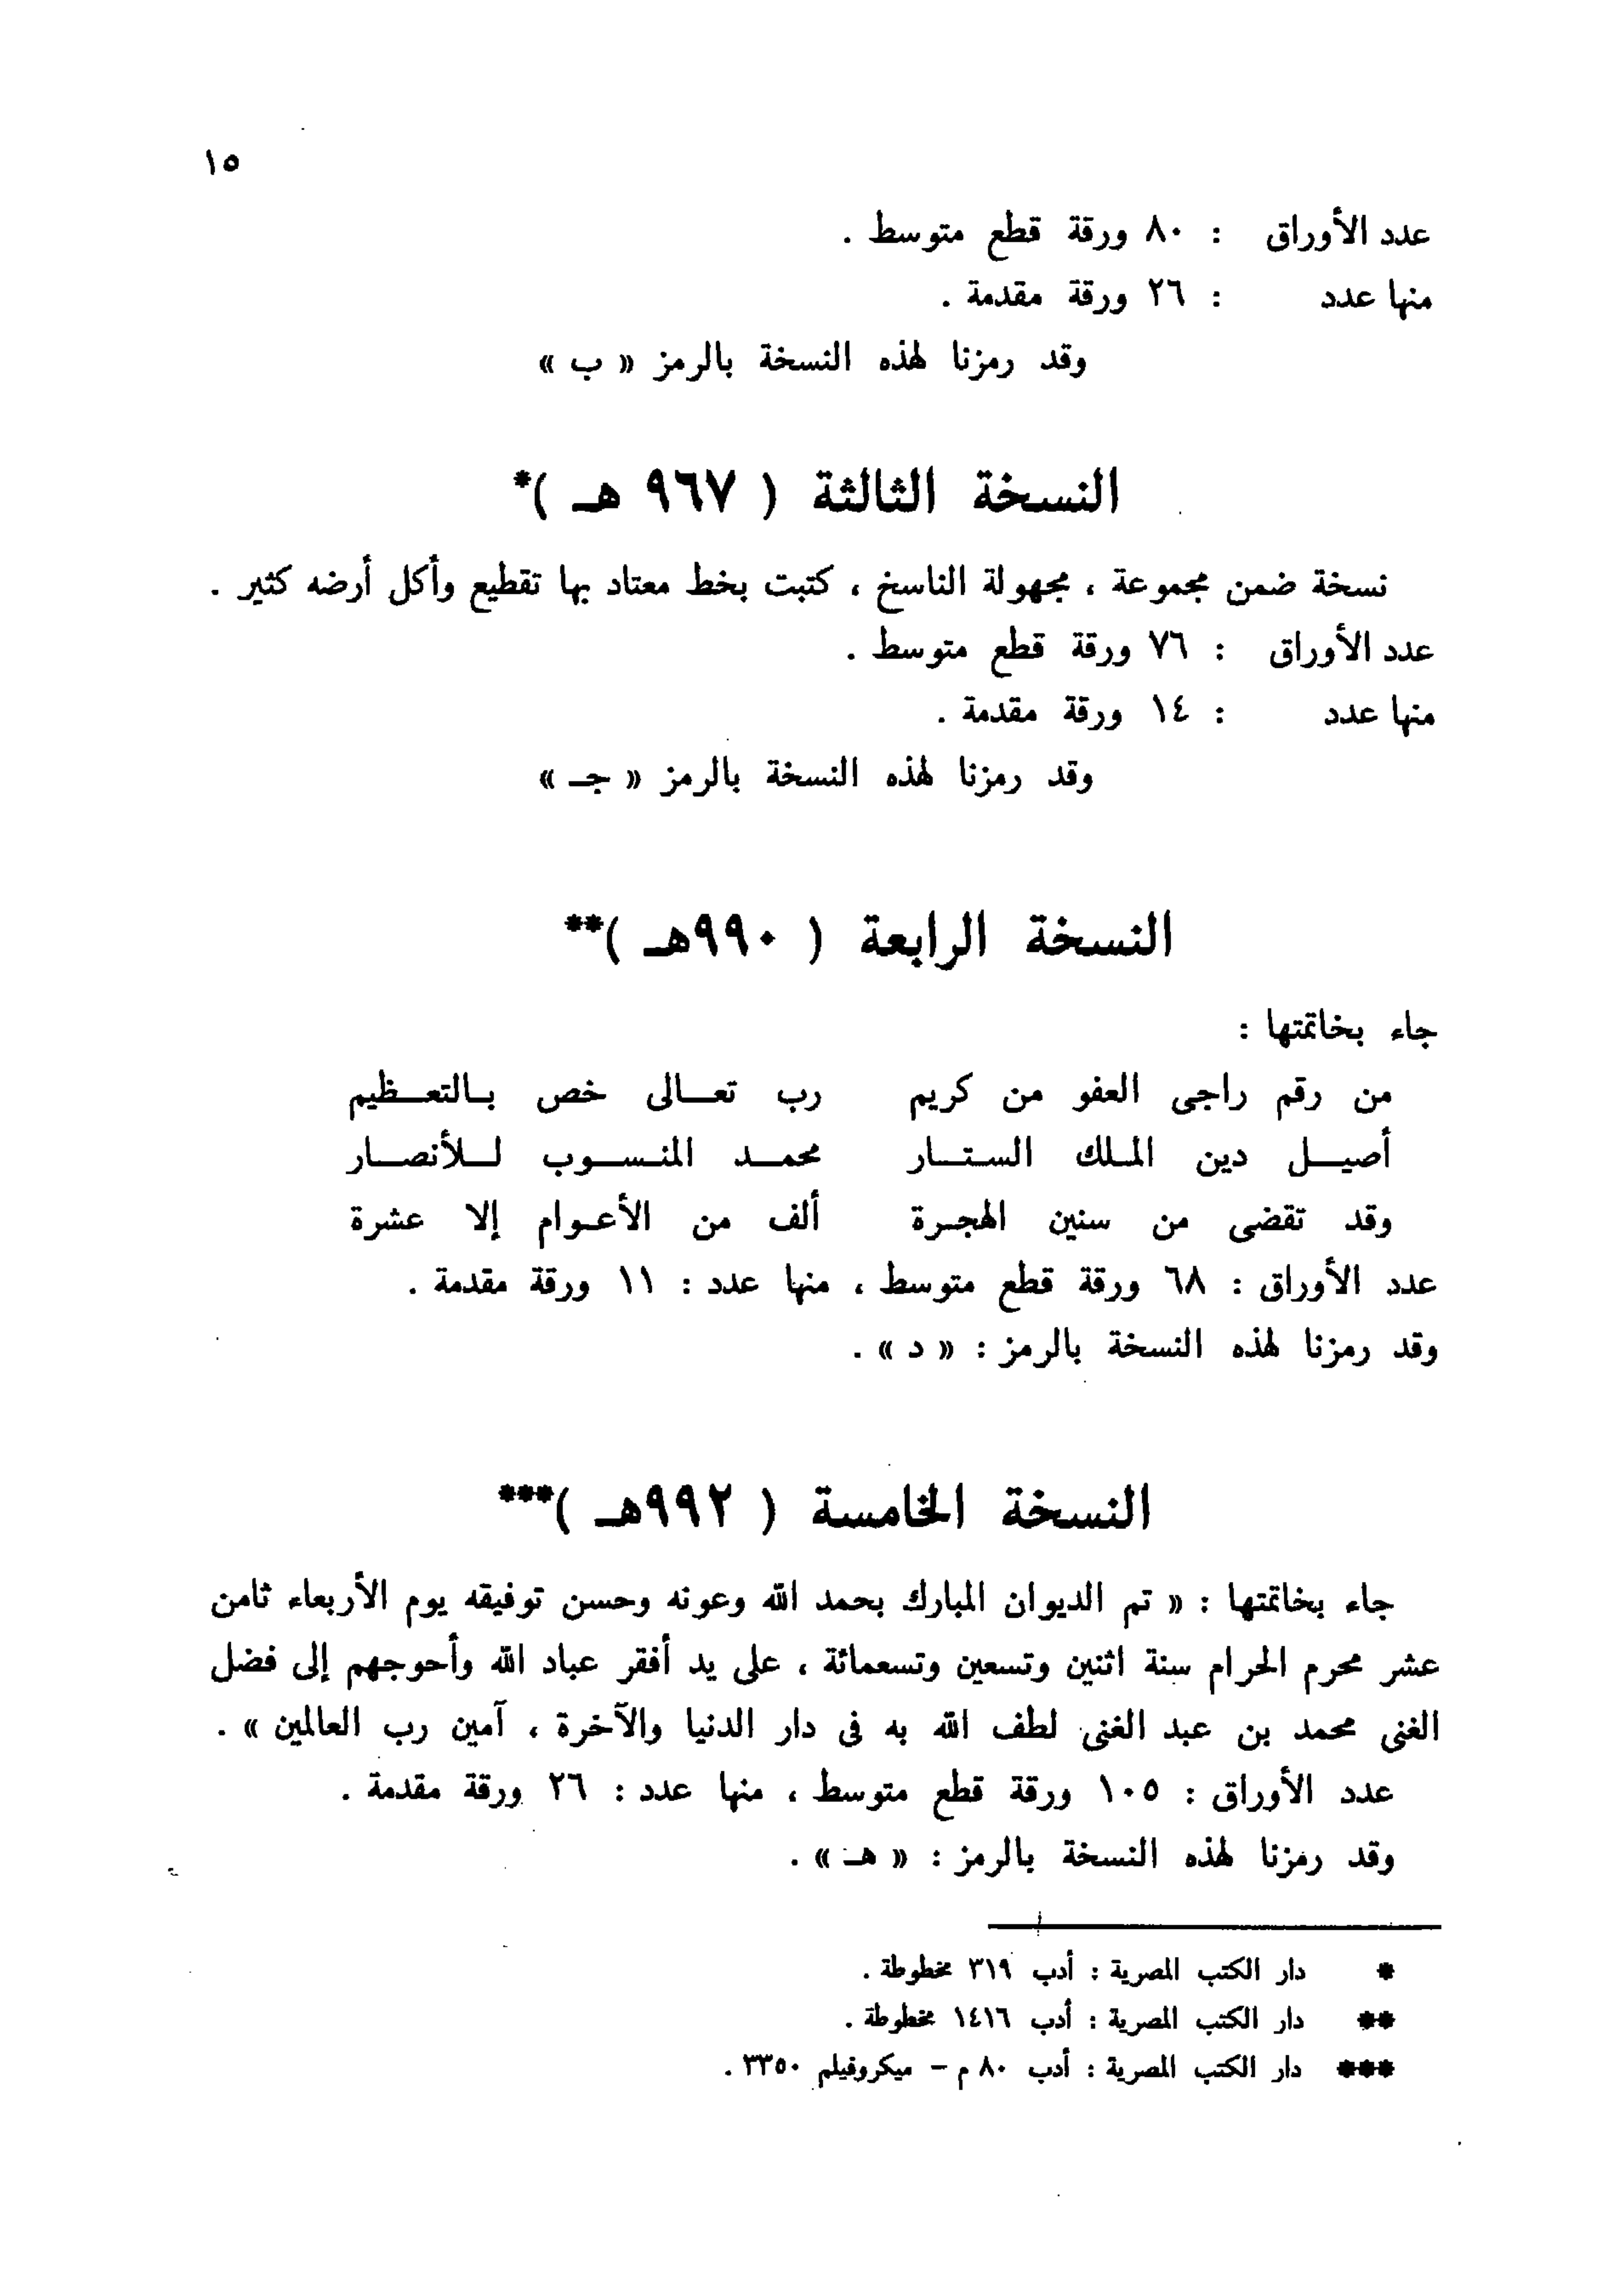 ١٥
عدد الأوراق : ٨٠ ورقة قطع متوسط .
منها عدد : ٢٦ ورقة مقدمة .
وقد رمزنا لهذه النسخة بالرمز « ب »
النسخة الثالثة ( ٩٦٧ هـ )*
نسخة ضمن مجموعة ، مجهولة الناسخ ، كتبت بخط معتاد بها تقطيع وأكل أرضه كثير .
عدد الأوراق : ٧٦ ورقة قطع متوسط .
منها عدد : ١٤ ورقة مقدمة .
وقد رمزنا لهذه النسخة بالرمز « جـ »
النسخة الرابعة ( ٩٩٠هـ )**
جاء بخاتمتها :
من رقم راجى العفو من كريم رب تعـالى خص بـالتعـظيم
أصيـل دين الملك الستـار محمـد المنسـوب لـلأنصـار
وقد تقضى من سنين الهجرة ألف من الأعوام إلا عشرة
عدد الأوراق : ٦٨ ورقة قطع متوسط ، منها عدد : ١١ ورقة مقدمة .
وقد رمزنا لهذه النسخة بالرمز : « د » .
النسخة الخامسة ( ٩٩٢هـ )***
جاء بخاتمتها : « تم الديوان المبارك بحمد الله وعونه وحسن توفيقه يوم الأربعاء ثامن
عشر محرم الحرام سنة اثنين وتسعين وتسعمائة ، على يد أفقر عباد الله وأحوجهم إلى فضل
الغنى محمد بن عبد الغنى لطف الله به فى دار الدنيا والآخرة ، آمين رب العالمين » .
عدد الأوراق : ١٠٥ ورقة قطع متوسط ، منها عدد : ٢٦ ورقة مقدمة .
وقد رمزنا لهذه النسخة بالرمز : « هـ » .
* دار الكتب المصرية : أدب ٣١٩ مخطوطة .
** دار الكتب المصرية : أدب ١٤١٦ مخطوطة .
*** دار الكتب المصرية : أدب ٨٠ م – ميكروفيلم ٣٣٥٠ .